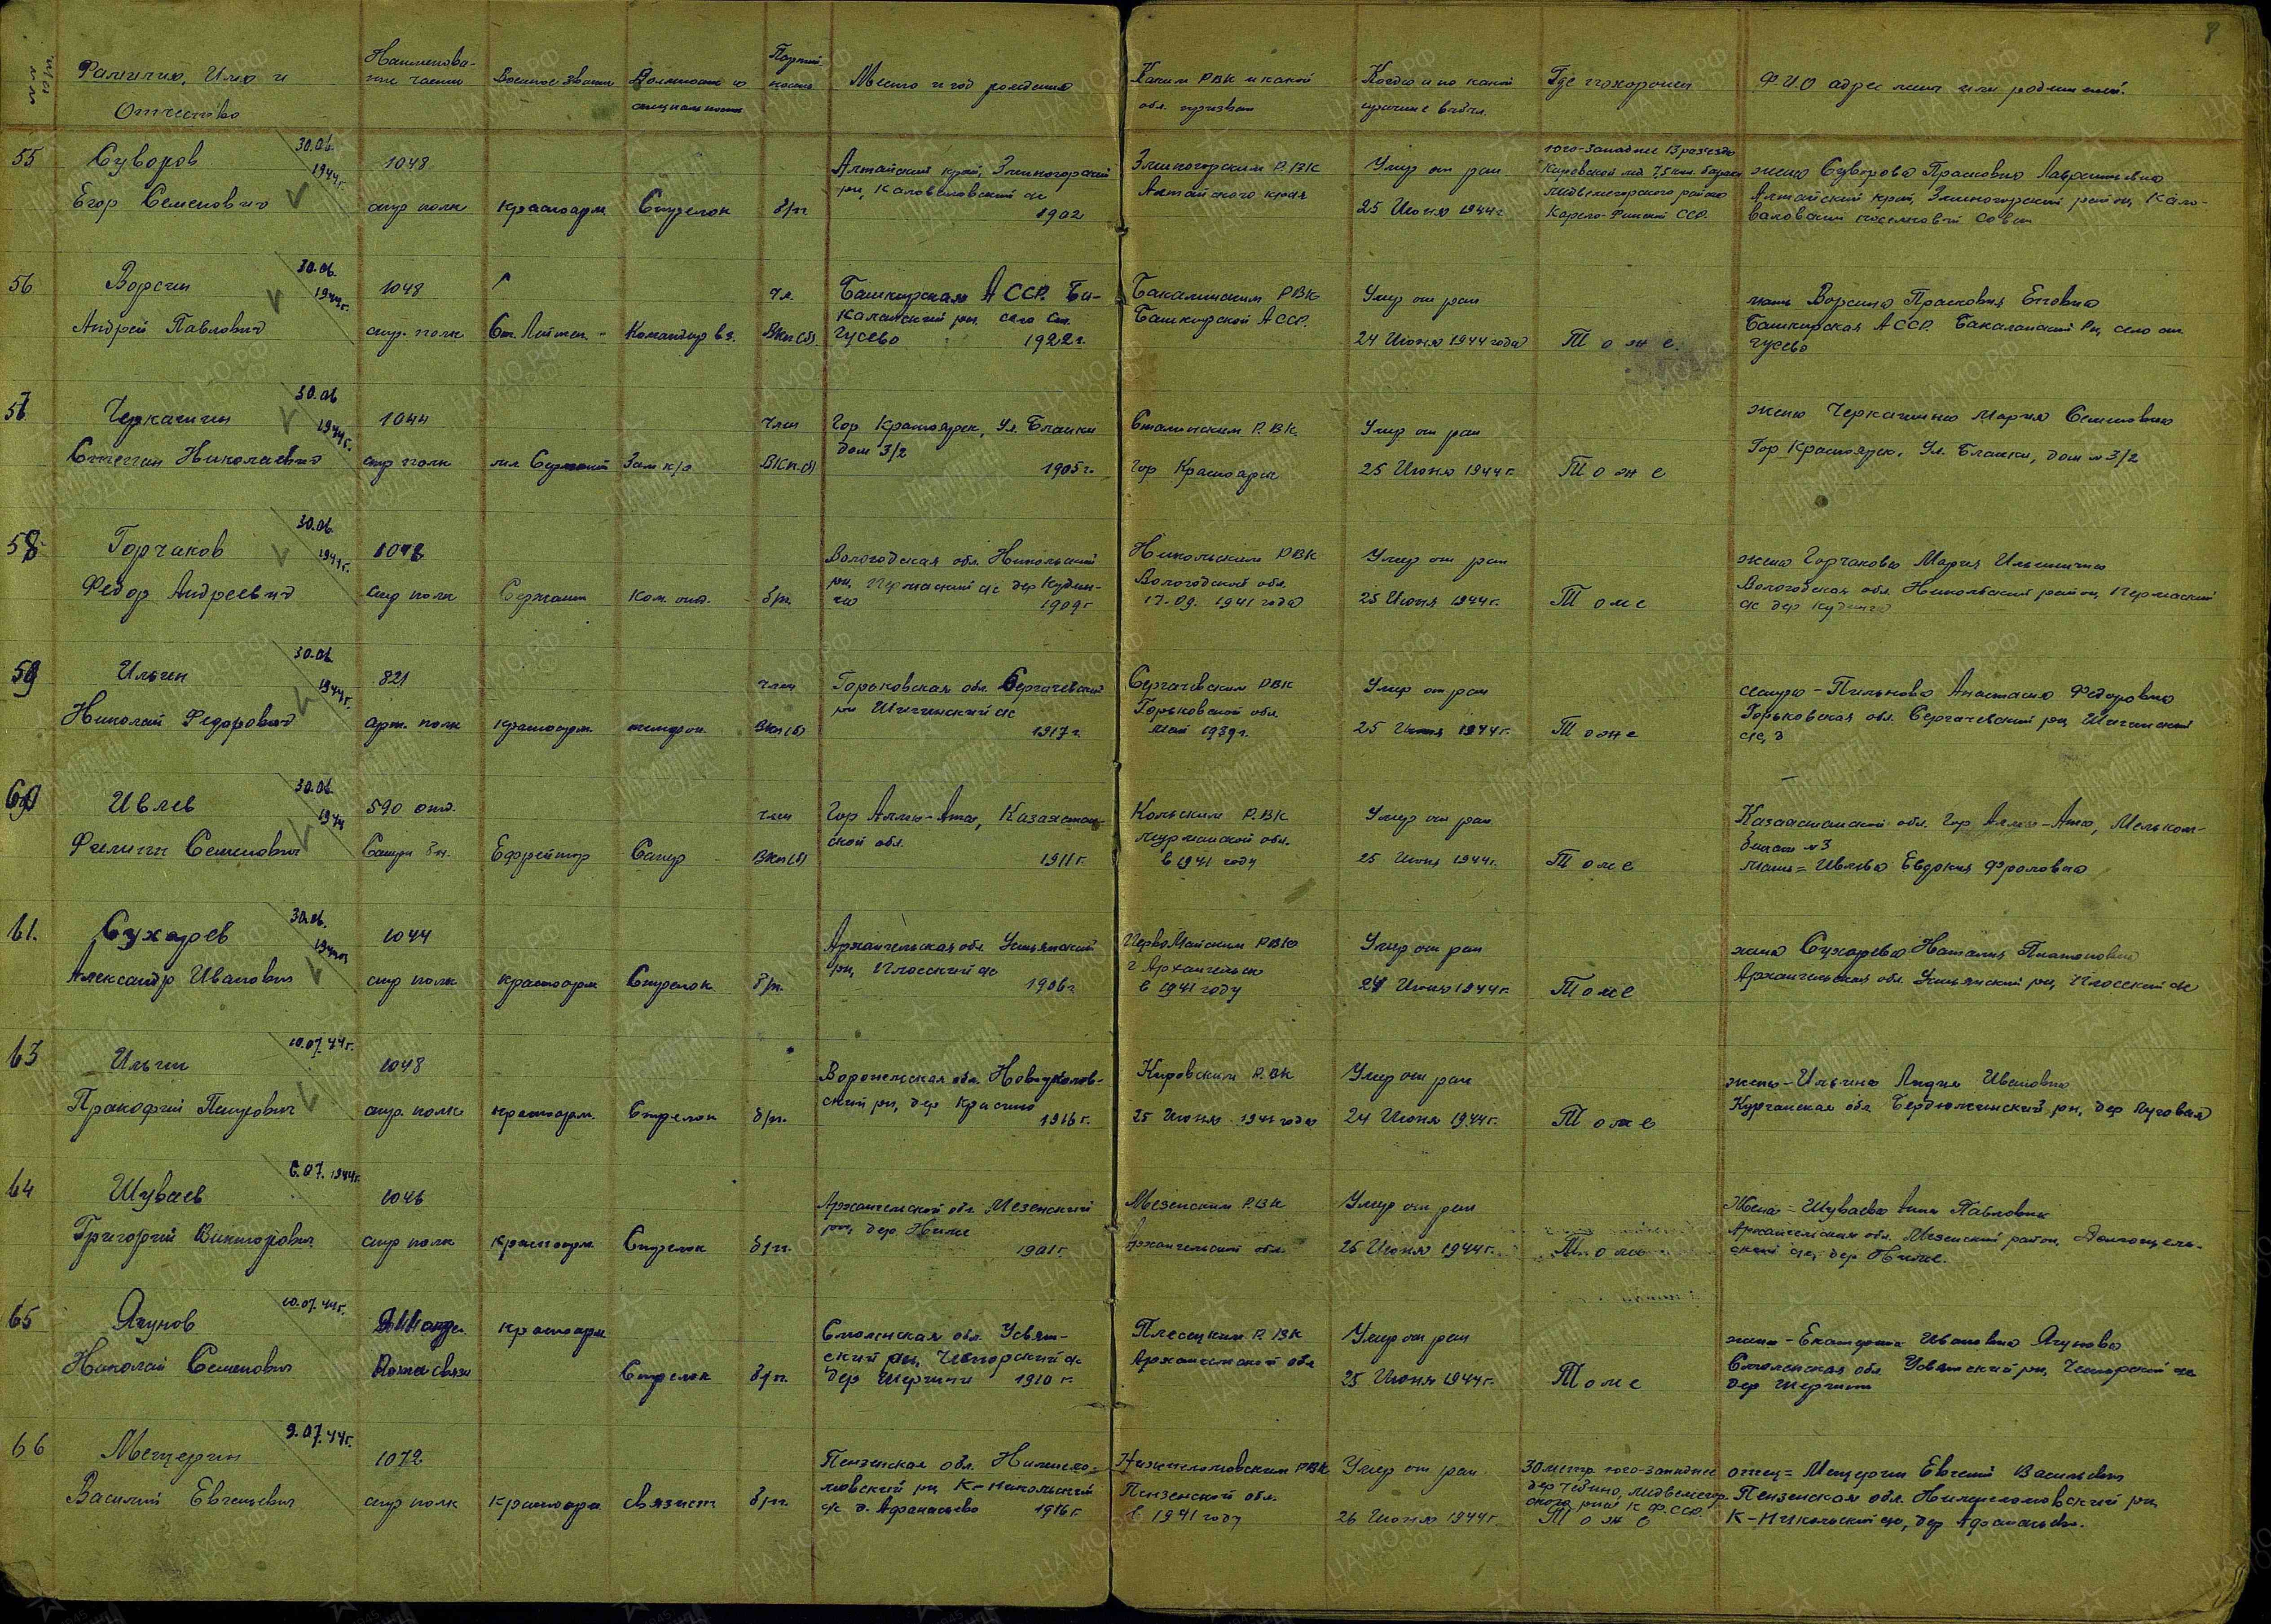 8
№№ п/п
Фамилия, Имя и
Отчество
Наименова-
ние части
Военное звание
Должность и
специальность
Партий-
ность
Место и год рождения
Каким РВК и какой
обл. призван
Когда и по какой
причине выбыл.
Где похоронен
Ф.И.О адрес жены или родителей.
55
Суворов
Егор Семенович
30.06.
1944г.
1048
стр полк
красноарм
Стрелок
б/п
Алтайский край, Змеиногорский
рн,
1902
Змеиногорским Р.ВК
Алтайского края
Умер от ран
25 Июня 1944г
юго-западнее 13 разъезда
Кировской жд
Медвежегорского района
Карело-Финской ССР.
жена Суворова Прасковья Лаврентьевна
Алтайский край, Змеиногорский район,
56
Ворсин
Андрей Павлович
30.06.
1944г.
1048
стр. полк
Ст. Лейтен
Командир вз.
чл.
ВКП(б)
Башкирская АССР. Ба-
калинский рн. село Ст.
Гусево 1922г.
Бакалинским РВК
Башкирской АССР.
Умер от ран
24 Июня 1944 года
Тоже.
мать Ворсина Прасковья
Башкирская АССР. Бакалинский рн, село ст
Гусево
57
Черкашин
Степан Николаевич
30.06
1944г.
1044
стр полк
мл Сержант
Зам к/о
член
ВКП(б)
Гор Красноярск, Ул. Бланки
дом 3/2
1905г.
Сталинским Р.ВК.
Гор Красноярск
Умер от ран
25 Июня 1944г.
Тоже
жена Черкашина Мария Семеновна
Гор Красноярск, Ул. Бланки, дом №3/2
58
Горчаков
Федор Андреевич
30.06.
1944г.
1048
стр полк
Сержант
Ком. отд.
б/п.
Вологодская обл. Никольский
рн, Пермасский с/с дер Кудан-
га 1909г
Никольским РВК
Вологодской обл.
17.09. 1941 года
Умер от ран
25 Июня 1944г.
Тоже
жена Горчакова Мария Ильинична
Вологодская обл. Никольский район, Пермасский
с/с дер Куданга
59
Ильин
Николай Федорович
30.06
1944г.
821
арт. полк
красноарм.
телефон.
член
ВКП(б)
Горьковская обл. Сергачевский
рн с/с
1917г.
Сергачевским РВК
Горьковской обл.
май 1939г.
Умер от ран
25 Июня 1944г.
Тоже
сестра - Пильнова Анастасия Федоровна
Горьковская обл. Сергачевский рн,
с/с,
60
Ивлев
Филипп Семенович
30.06.
1944
590 отд.
Саперн бн.
Ефрейтор
Сапер
член
ВКП(б)
Гор Алма-Ата, Казахстан-
ской обл.
1911г.
Кольским Р.ВК
Мурманской обл.
в 1941 году
Умер от ран
25 Июня 1944г.
Тоже
Казахстанской обл. Гор Алма-Ата, Мельком-
бинат №3
мать = Ивлева Евдокия Фроловна
61.
Сухарев
Александр Иванович
30.06.
1944г
1044
стр полк
красноарм
Стрелок
б/п.
Архангельская обл. Устьянский
рн, Плосский с/с
1906г
ПервоМайским РВК
г Архангельск
в 1941 году
Умер от ран
24 Июня 1944г.
Тоже
жена Сухарева Наталия Платоновна
Архангельская обл. Устьянский рн, Плосский с/с
63
Ильин
Прокофий Петрович
10.07.44г.
1048
стр. полк
красноарм.
Стрелок
б/п.
Воронежская обл.
ский рн, дер Красино
1916г.
Кировским Р.ВК
25 Июня 1941 года
Умер от ран
24 Июня 1944г.
Тоже
жена - Ильина Лидия Ивановна
Курганская обл Бердюжинский рн, дер Луговая
64
Шуваев
Григорий Викторович
6.07.1944г.
1046
стр полк
красноарм.
Стрелок
б/п.
Архангельской обл. Мезенский
рн, дер
1901г.
Мезенским Р.ВК
Архангельской обл.
Умер от ран
25 Июня 1944г.
Тоже
Жена = Шуваева Анна Павловна
Архангельская обл. Мезенский район, Долгощель-
ский с/с, дер
65
Ягунов
Николай Семенович
10.07.44г.
красноарм
Стрелок
б/п.
Смоленская обл. Усвят-
ский рн, с/с
дер 1910 г.
Плесецким Р.ВК
Архангельской обл
Умер от ран
25 Июня 1944г.
Тоже
жена - Екатерина Ивановна Ягунова
Смоленская обл. Усвятский рн, с/с
дер
66
Мещерин
Василий Евгеньевич
9.07.44г.
1072
стр полк
красноарм
связист
б/п.
Пензенская обл. Нижнело-
мовский рн, К-Никольский
с/с д. Афанасьево 1916г
Нижнеломовским РВК
Пензенской обл.
в 1941 году
Умер от ран
26 Июня 1944г.
30 метр юго-западнее
дер Медвежегор-
ского рна К.Ф.ССР.
Тоже
отец = Мещерин Евгений Васильевич
Пензенская обл. Нижнеломовский рн,
К-Никольский с/с, дер Афанасьево.